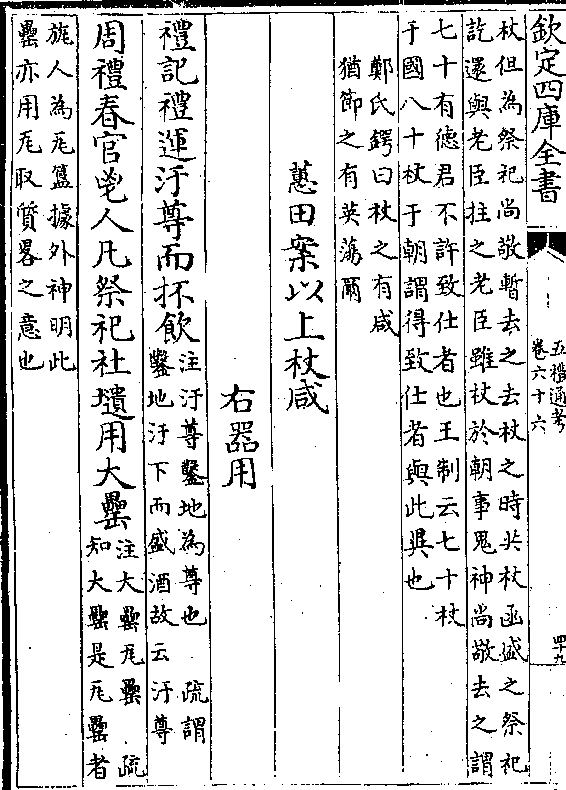 欽定四庫全書
五禮通考
卷六十六
四十九
杖但為祭祀尚敬暫去之去杖之時共杖函盛之祭祀
訖還與老臣拄之老臣雖杖於朝事鬼神尚敬去之謂
七十有德君不許致仕者也王制云七十杖
于國八十杖于朝謂得致仕者與此異也
鄭氏鍔曰杖之有咸
猶節之有英蕩爾
蕙田案以上杖咸
右器用
禮記禮運汙尊而抔飲
注汙尊鑿地為尊也 疏謂
鑿地汙下而盛酒故云汙尊
周禮春官鬯人凡祭祀社壝用大罍
注大罍瓦罍 疏
知大罍是瓦罍者
旊人為瓦簋據外神明此
罍亦用瓦取質畧之意也